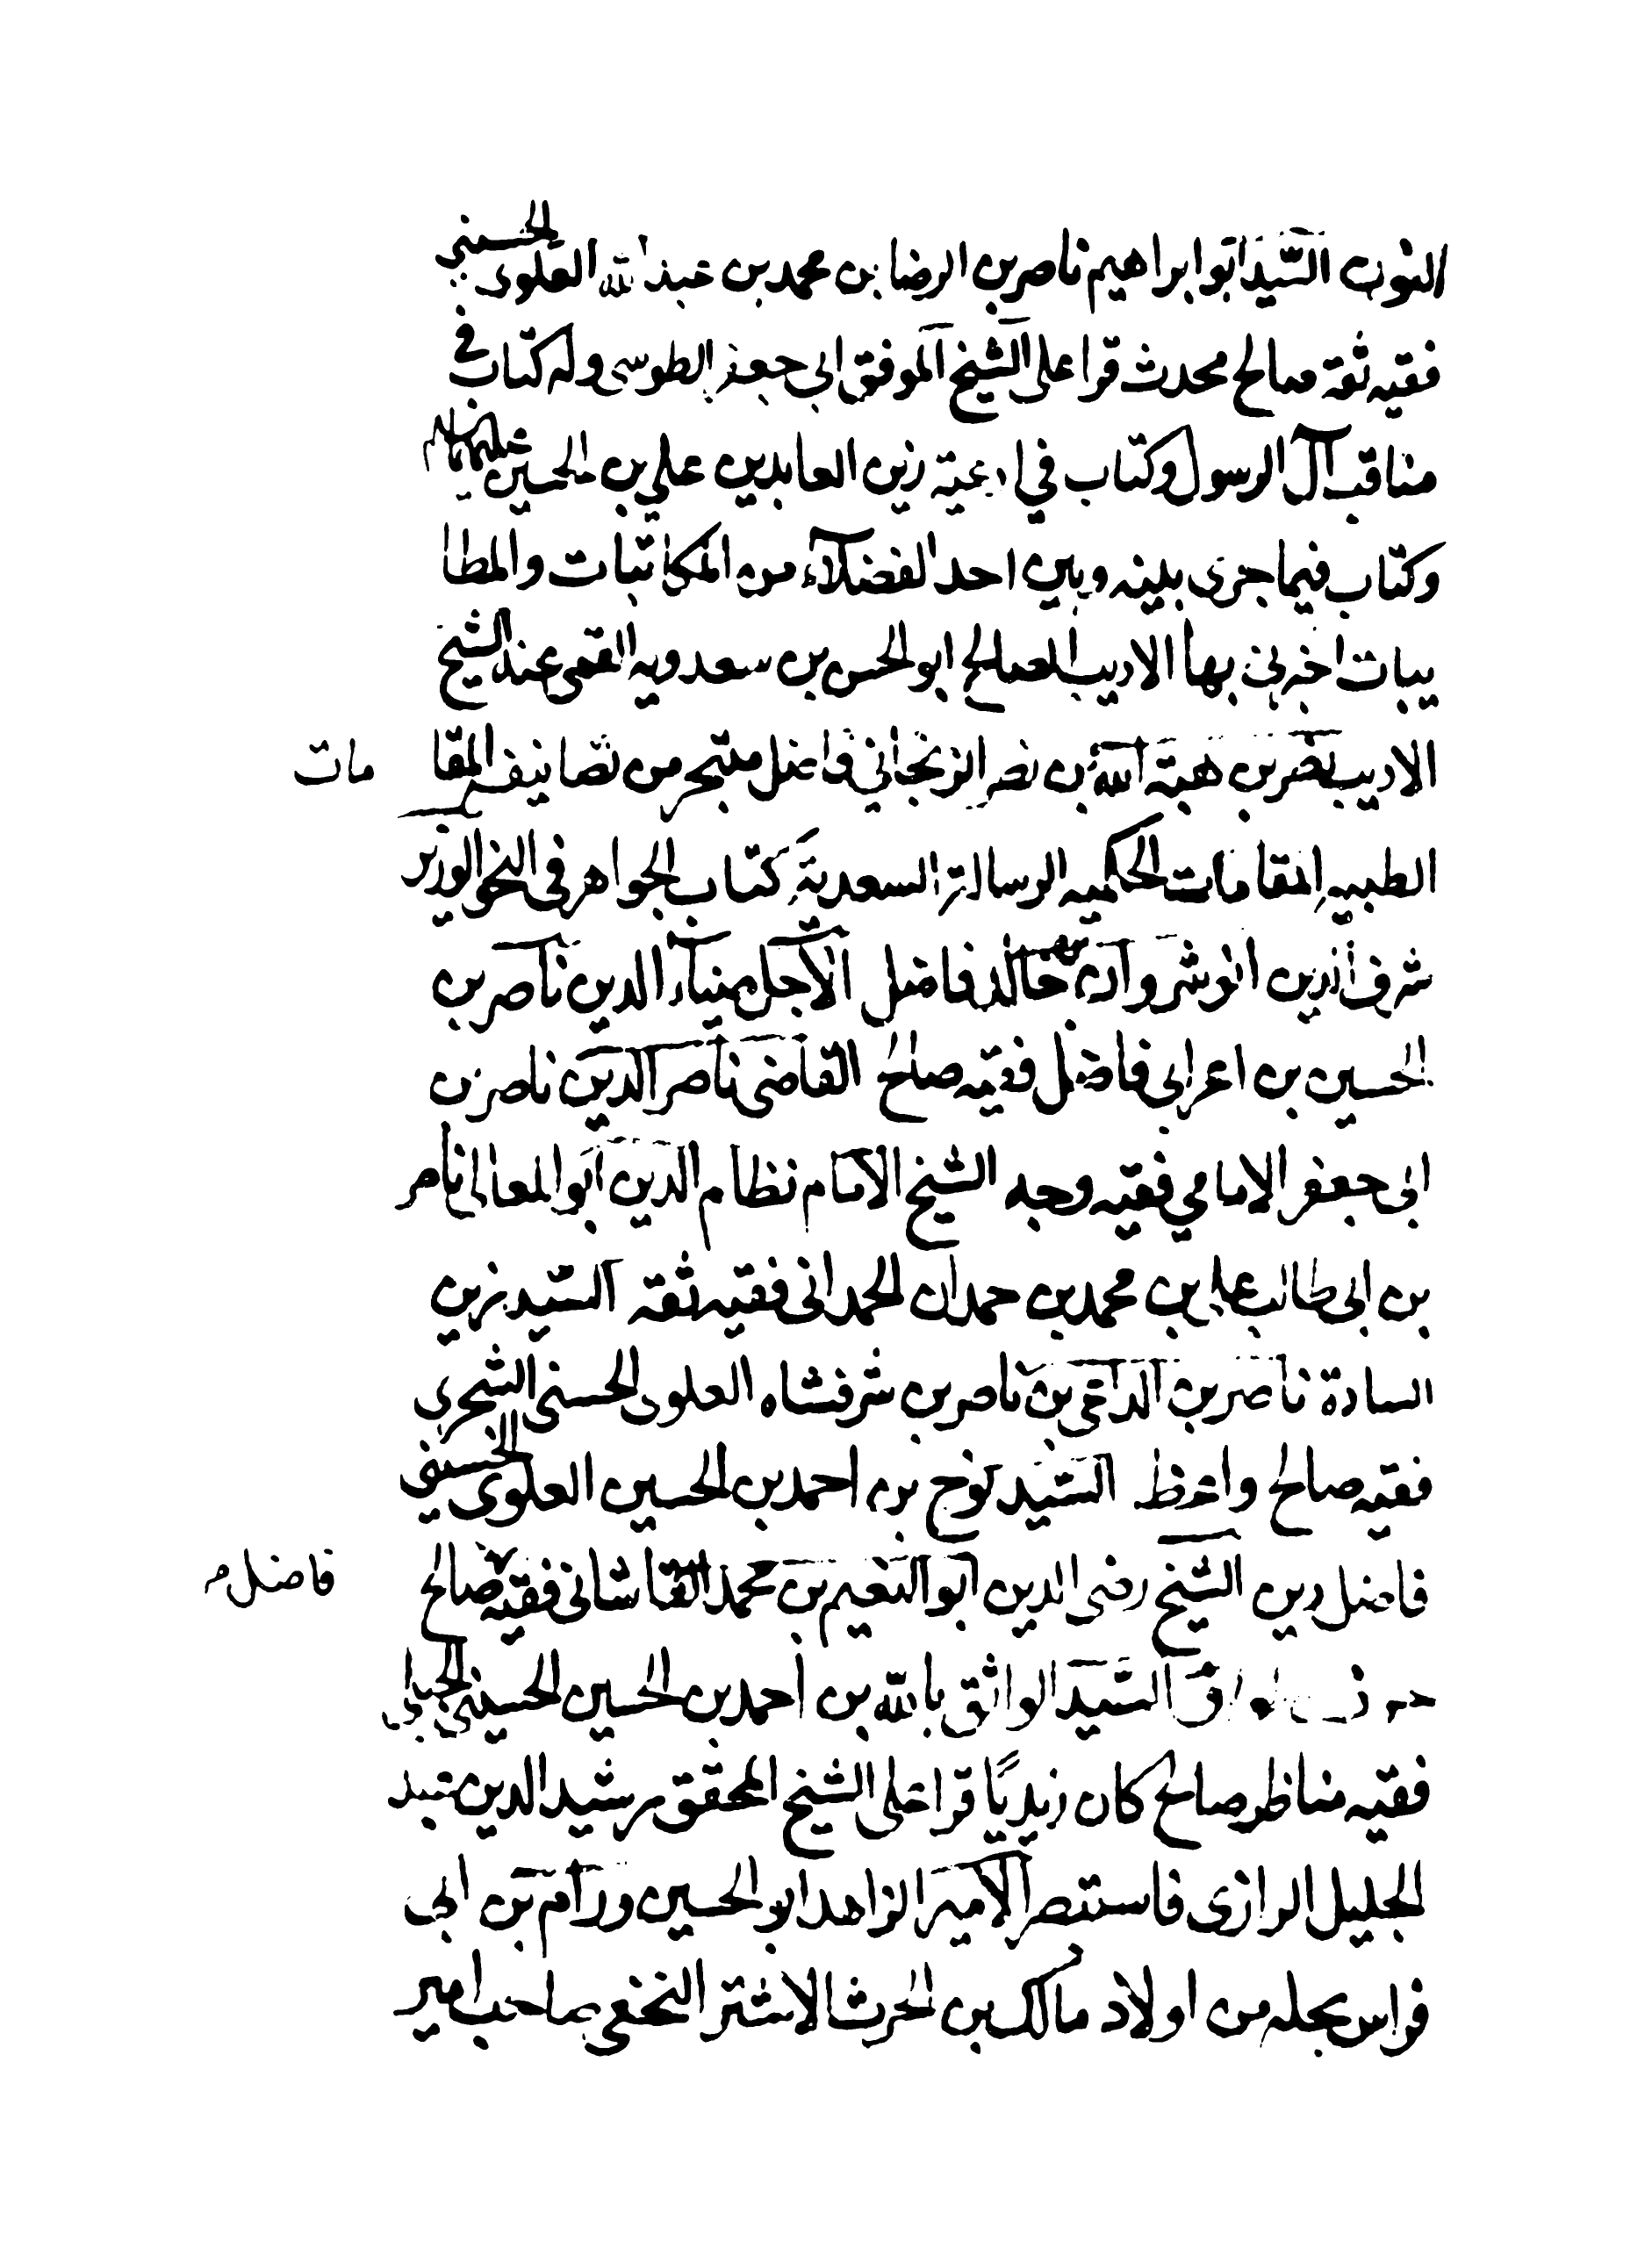 النون السيد ابو ابراهيم ناصر بن الرضا بن محمد بن عبد الله العلوى الحسيني
فقيه ثقة صالح محدث قرا على الشيخ الموفق ابى جعفر الطوسى وله كتاب في
مناقب آل الرسول وكتاب في ادعية زين العابدين علي بن الحسين عليهما السلام
وكتاب فيما جرى بينه وبين احد الفضلآء من المكاتبات والمطا
يبات اخبرني بها الاديب الصالح ابو الحسن بن سعدويه القمى عنه الشيخ
الاديب نصر بن هبة الله بن نصر الزنجاني فاضل متبحر من تصانيفه المقا مات
الطبيه المقامات الحكميه الرسالة السعدية كتاب الجواهر فى النحو الوزير
شرف الدين انوشروان خالد فاضل الاجل ضيآء الدين ناصر بن
الحسين بن اعرابى فاضل فقيه صالح القاضى ناصر الدين ناصر بن
ابى جعفر الامامي فقيه وجه الشيخ الامام نظام الدين ابو المعالى ناصر
بن ابى طالب على بن محمد بن حمدان الحمدانى فقيه ثقه السيد زين
السادة ناصر بن الداعى بن ناصر بن شرفشاه العلوى الحسنى الشجرى
فقيه صالح واعظ السيد نوح بن احمد بن الحسين العلوى الحسينى
فاضل دين الشيخ رضى الدين ابو النعيم بن محمد القاشانى فقيه صالح فاضل
السيد الواثق بالله بن احمد بن الحسين الحسينى الجيلى
فقيه مناظر صالح كان زيديًا قرا على الشيخ المحقق رشيد الدين عبد
الجليل الرازى فاستبصر الامير الزاهد ابو الحسين ورام بن ابى
فراس بحله من اولاد مالك بن الحرث الاشتر النخعى صاحب امير